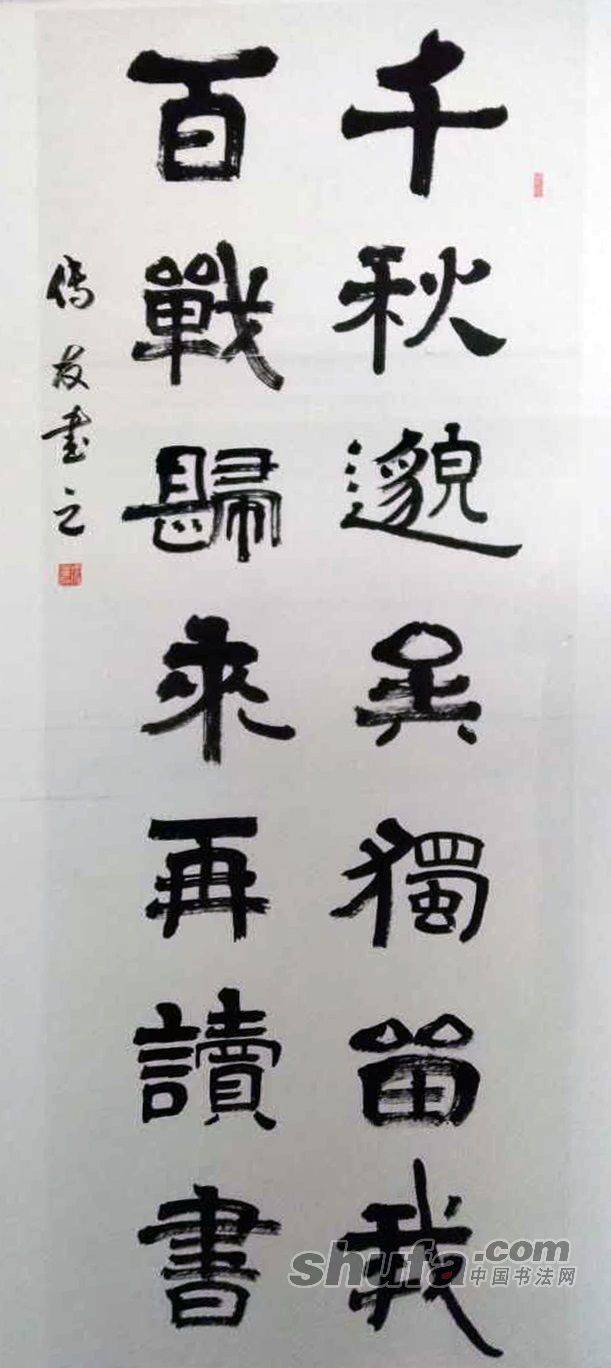 千秋邈矣獨留我
百戰歸來再讀書
友書之
shufa.com
中国书法网